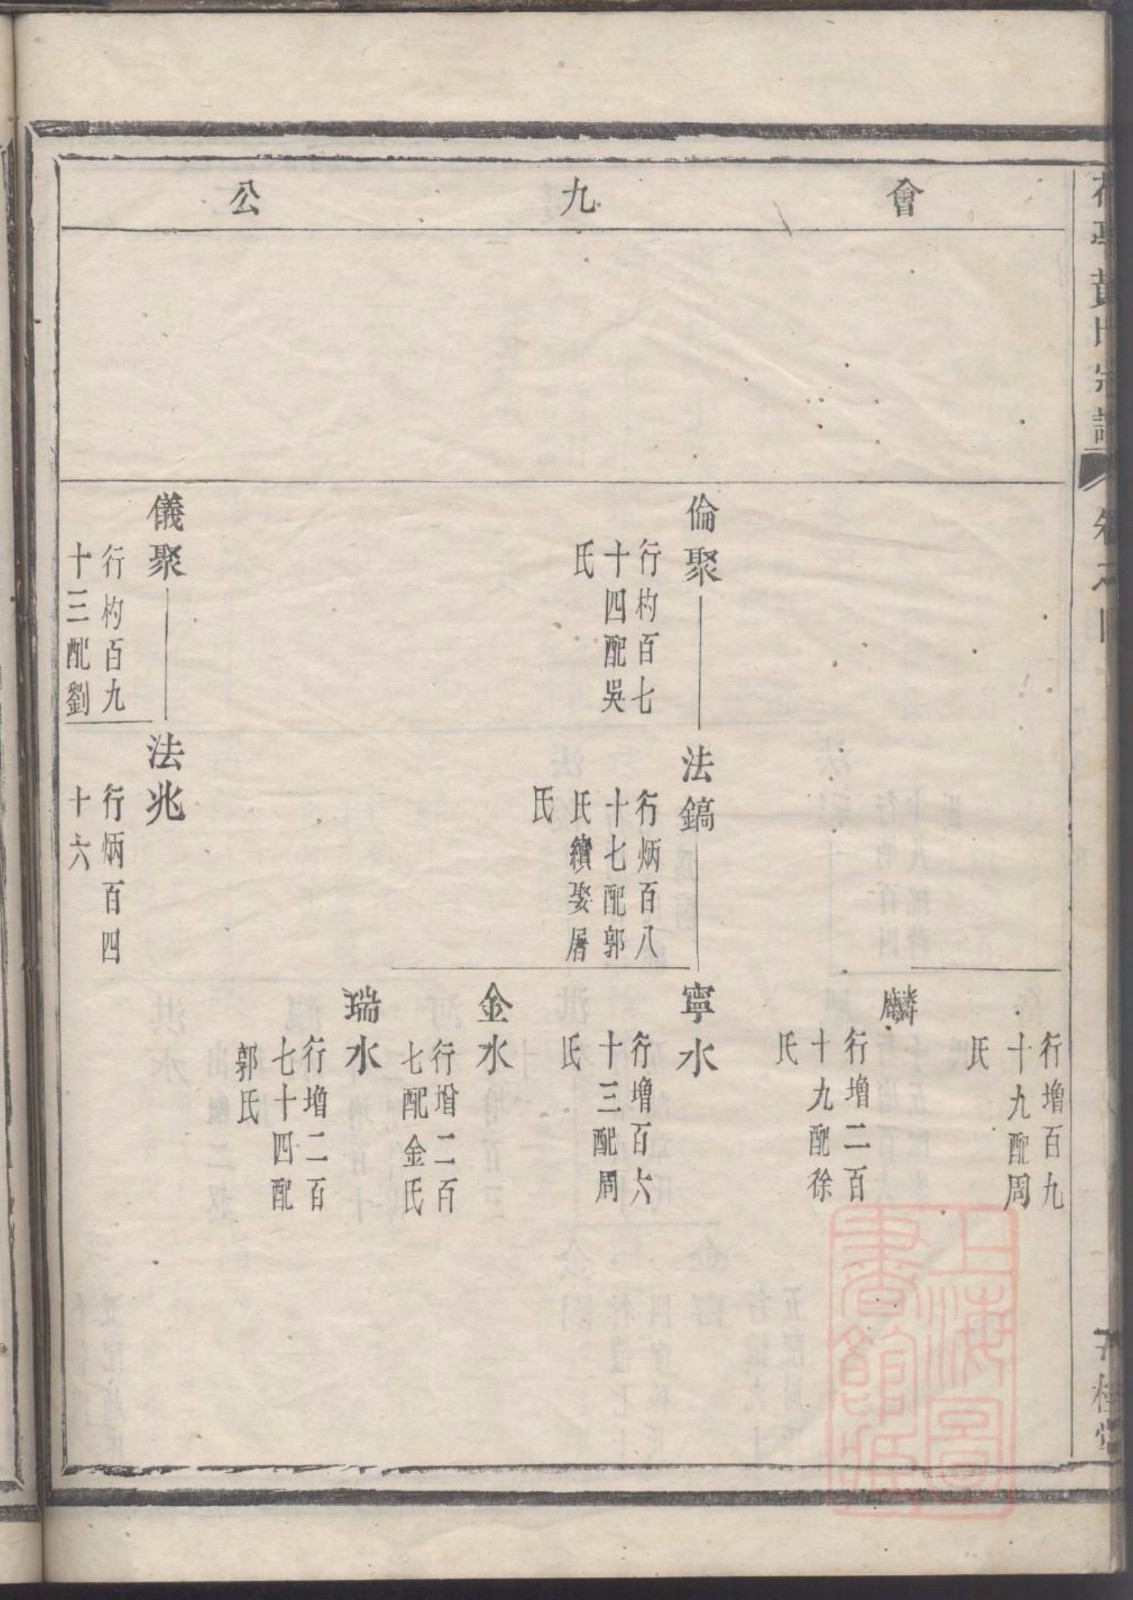 會九公
行增百九
十九配周
氏
麟
行增二百
十九配徐
氏
倫聚
行杓百七
十四配吳
氏
法鎬
行炳百八
十七配郭
氏續娶屠
氏
寧水
行增百六
十三配周
氏
金水
行增二百
七配金氏
瑞水
行增二百
七十四配
郭氏
儀聚
行杓百九
十三配劉
法兆
行炳百四
十六
上海圖
書館藏